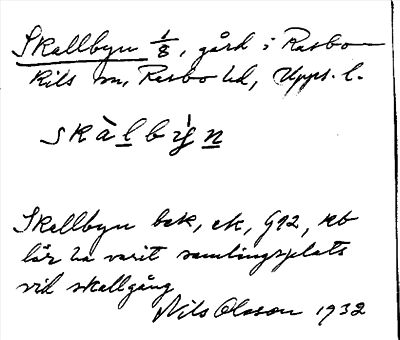 Skallbyn 1/8, gård i Rasbo-
kils sn, Rasbo hd, Upps. l.
skàlbýn
Skallbyn bek, ek, G12,
lär ha varit samlingsplats
vid skallgång
Nils Olsson 1932